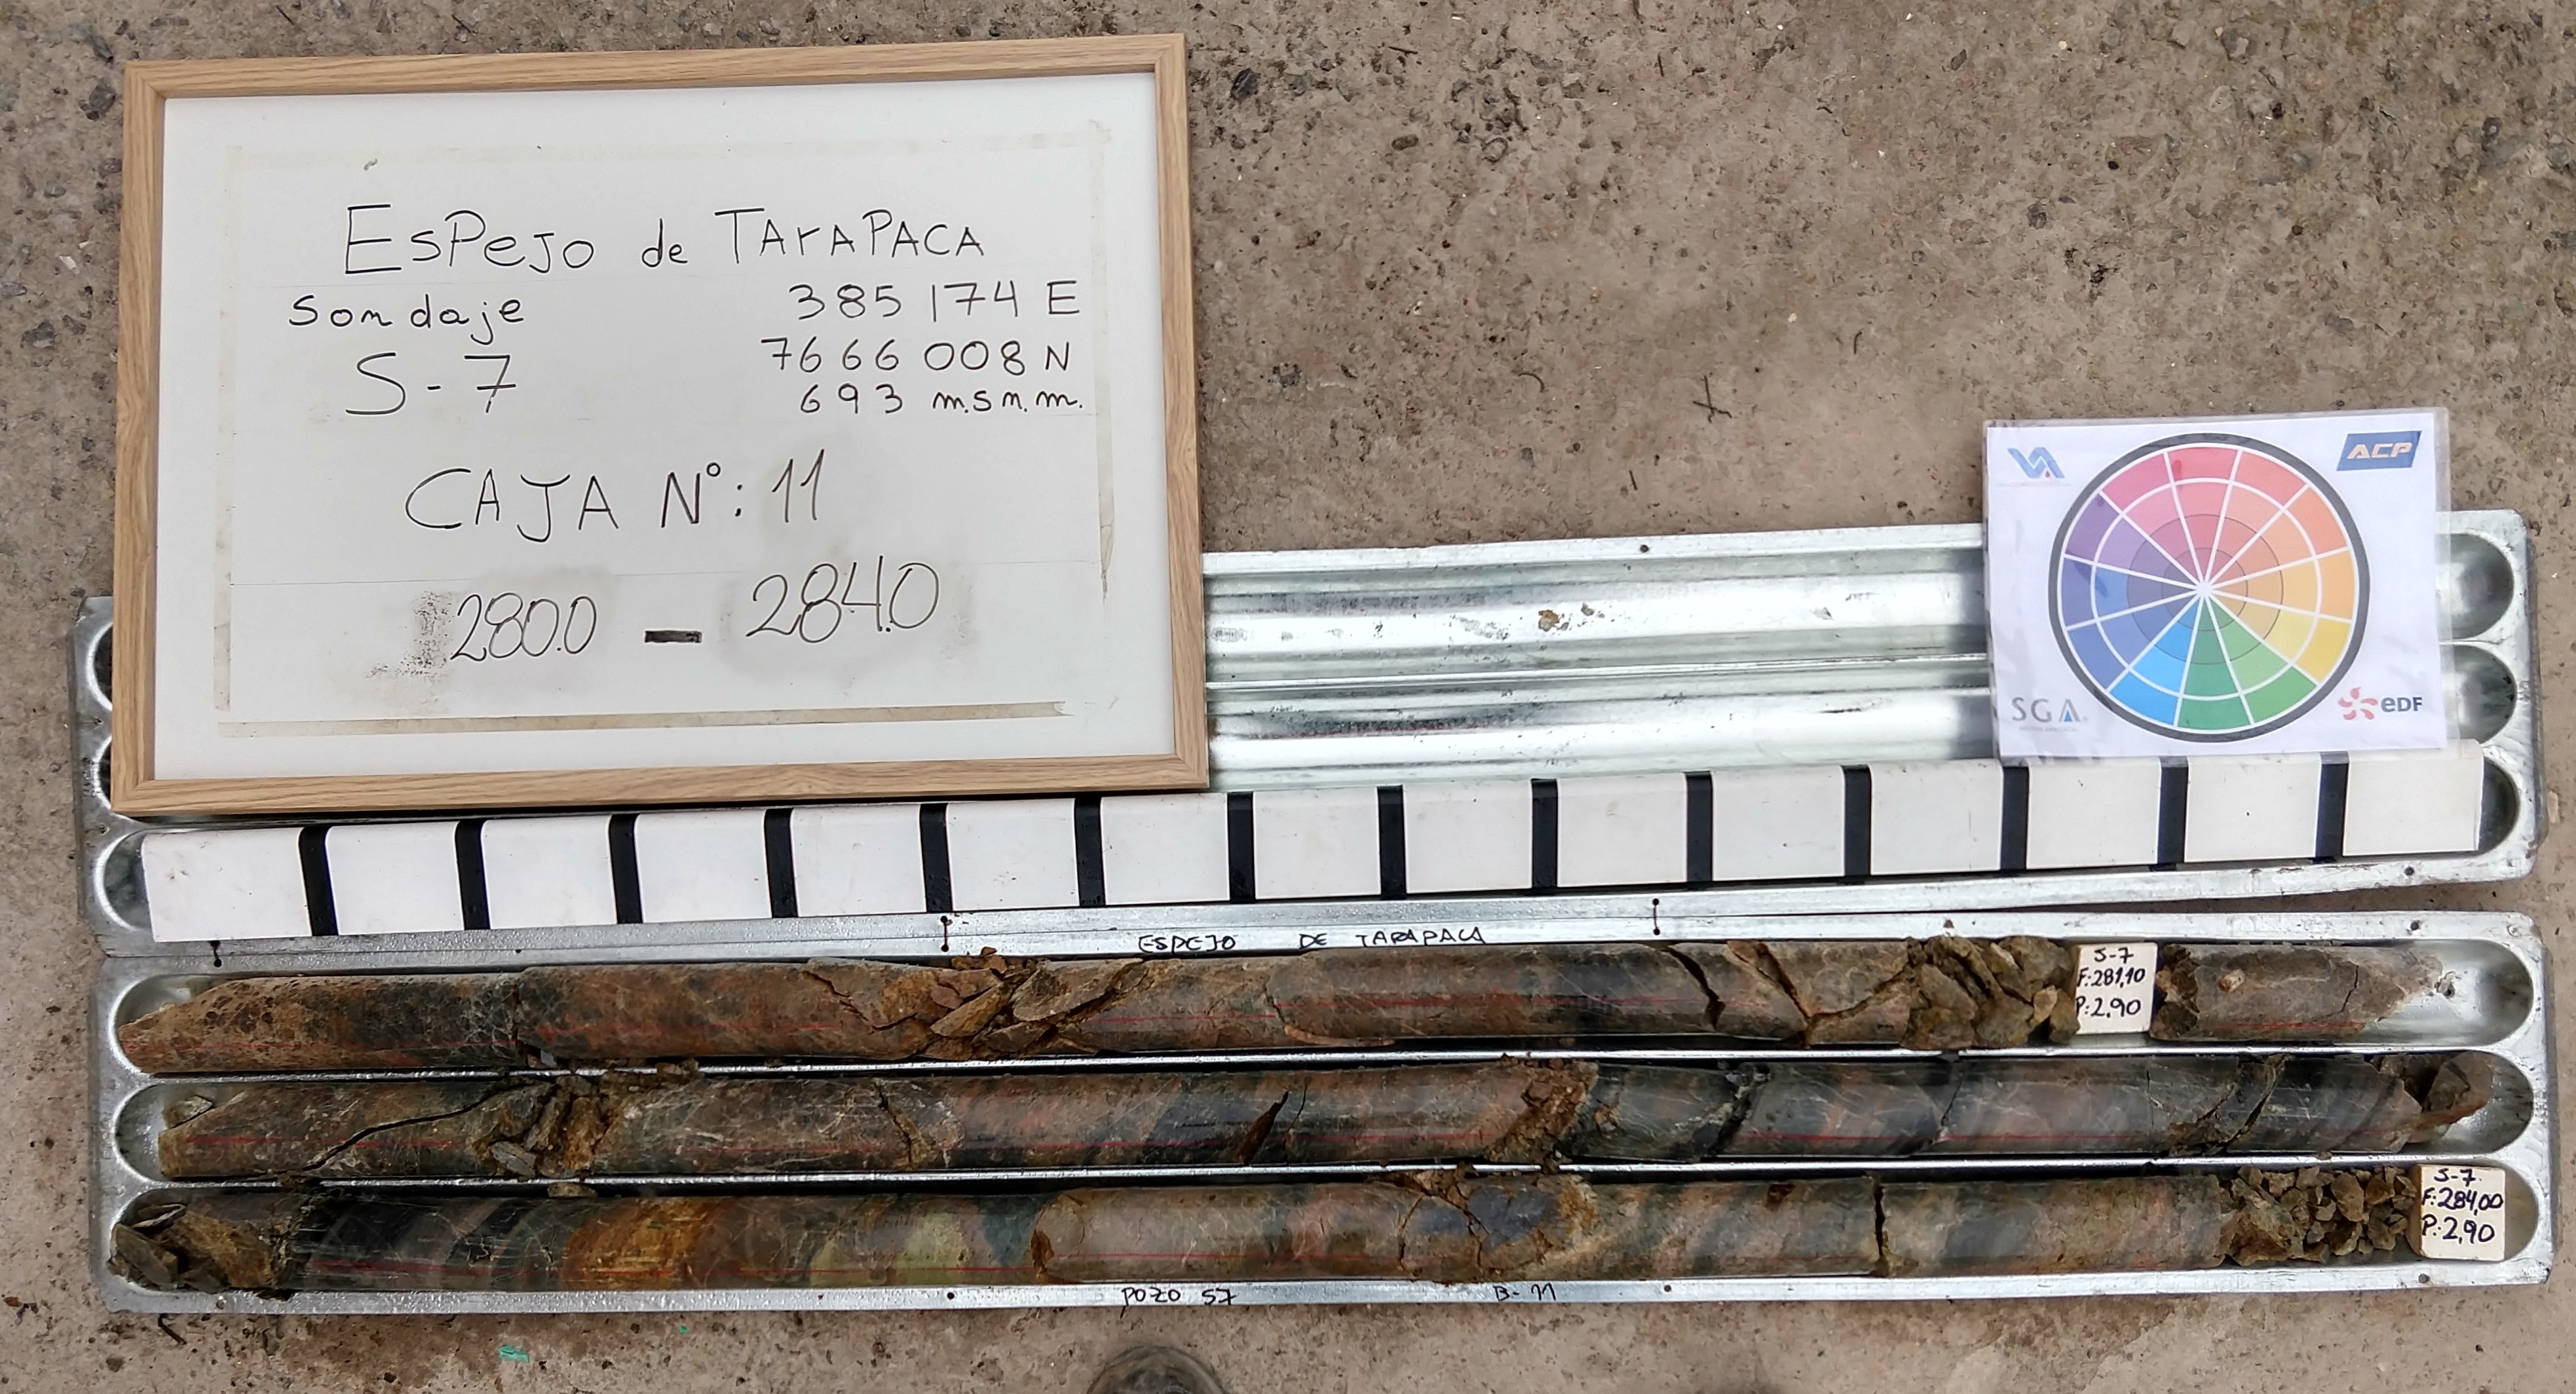 ESPEJO de TARAPACA
Sondaje
385174 E
S-7
7666 008 N
693 m.s.n.m.
CAJA N°: 11
280.0 - 284.0
ACP
SGA
eDF
ESPEJO DE TARAPACA
S-7
F:281,10
P:2,90
S-7
F:284,00
P:2,90
POZO S7 B-11